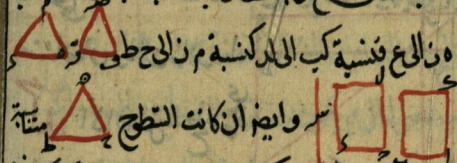 ه ن الى ع فنسبة كب الى لد كنسبة م ن الى ح ط
وايضا ان كانت السطوح متشابهة